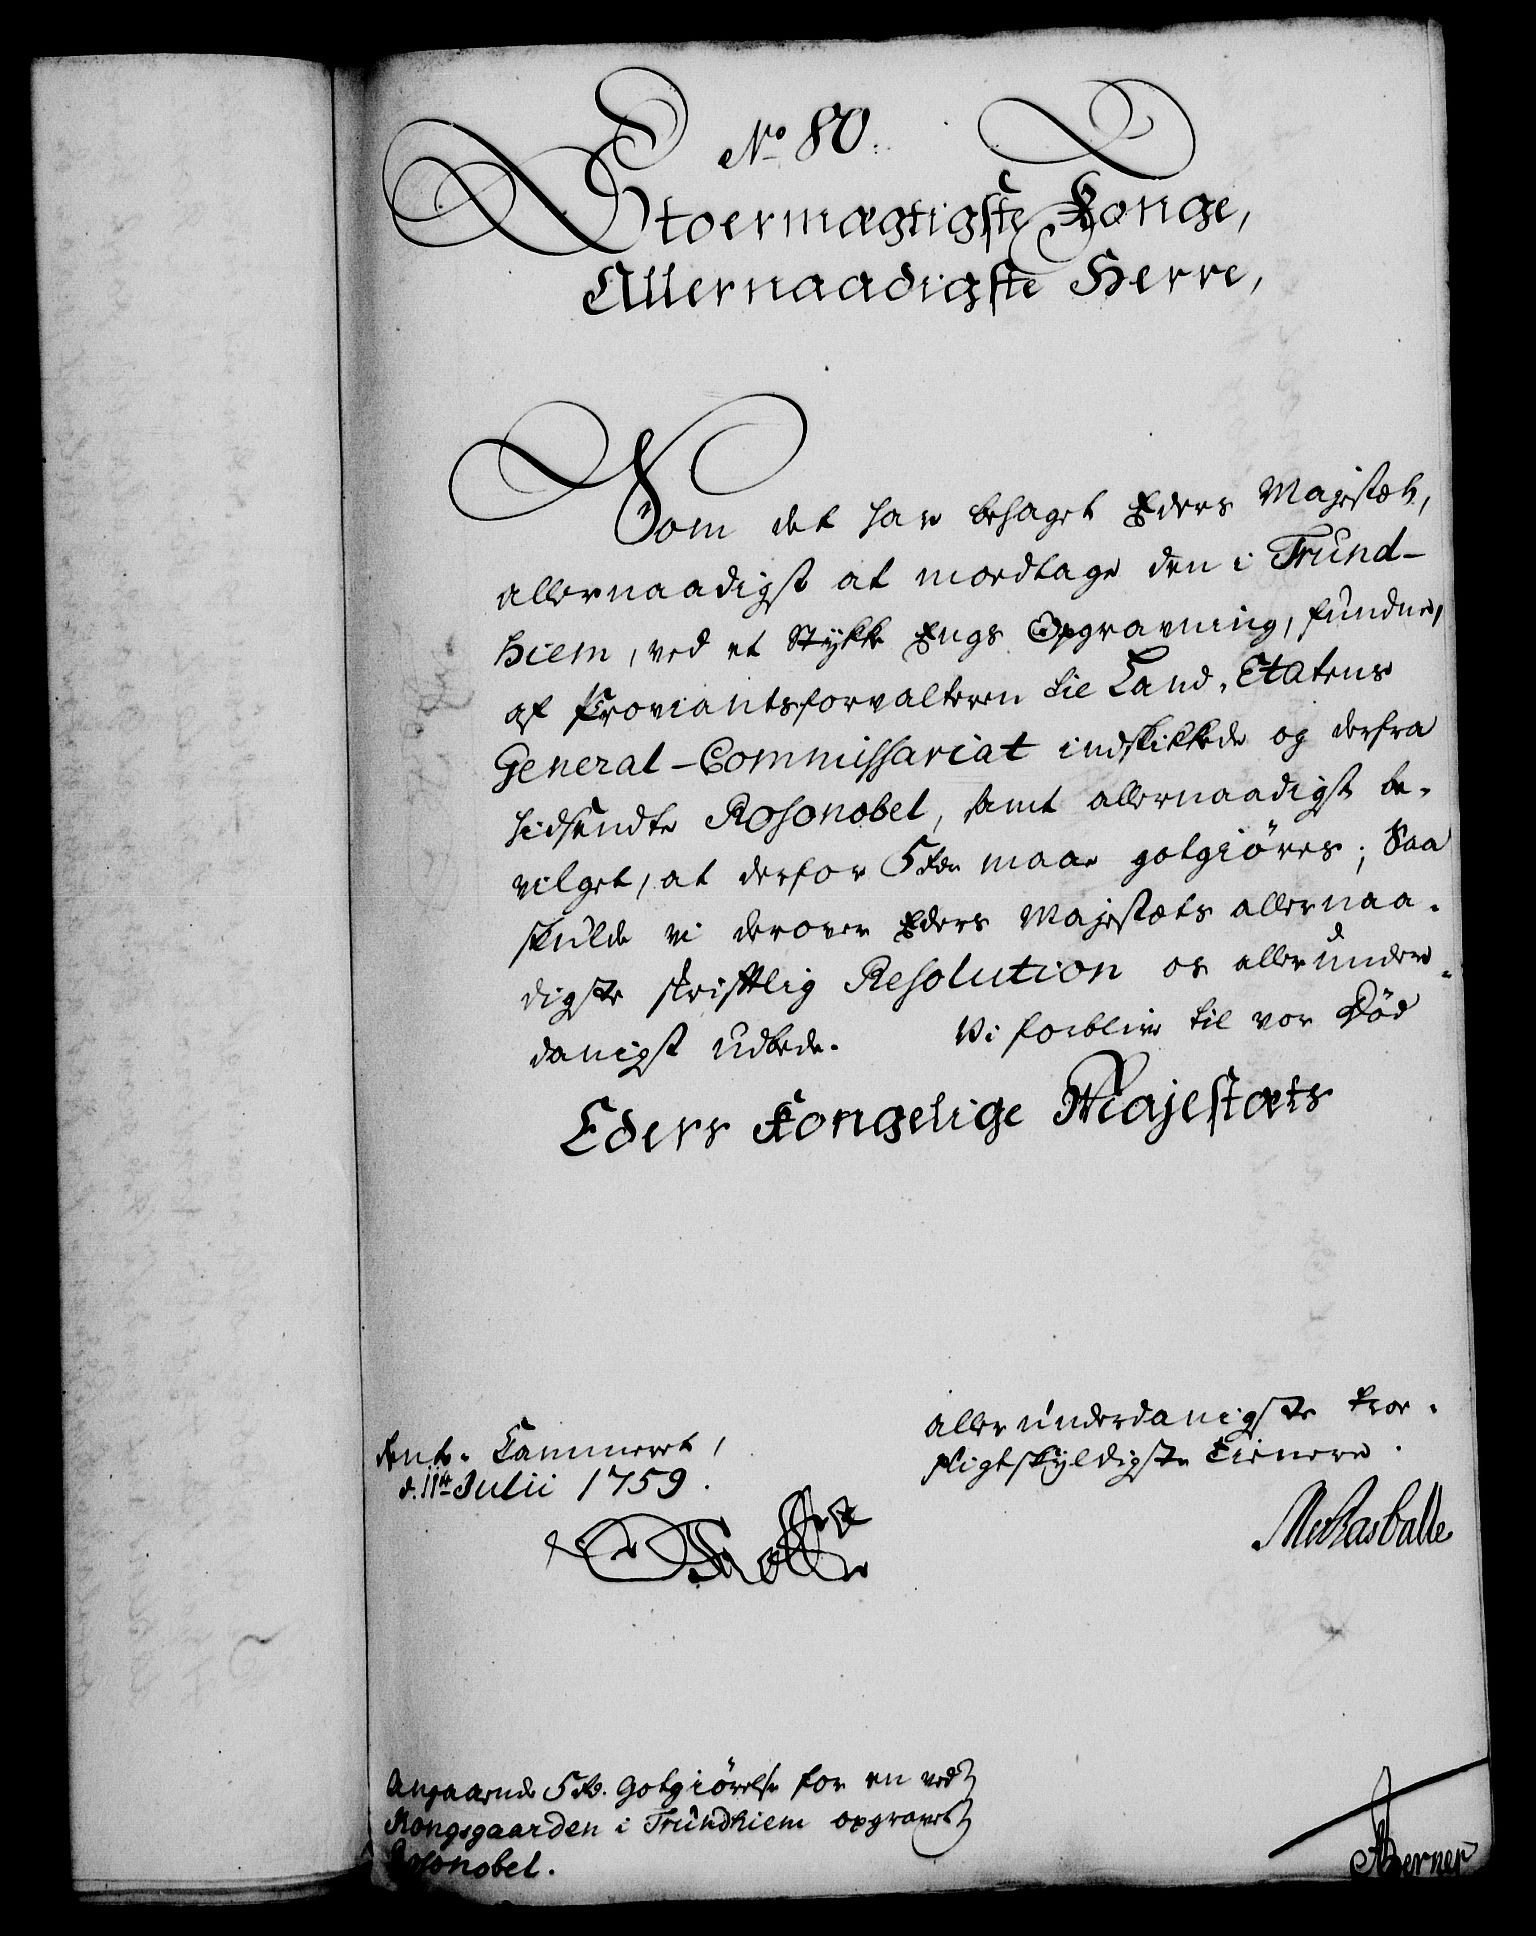 No 80.
Stoermægtigste Konge,
Allernaadigste Herre,
Som det har behaget Eders Majestæt,
allernaadigst at modtage den i Trund-
hiem, ved et Stykke Engs Opgravning, fundne,
af Proviantsforvalteren til Land-Etatens
General-Commissariat indskikkede og derfra
hidsendte Rosonobel, samt allernaadigst be-
vilget, at derfor 5 Rdr maae godtgiøres; Saa
skulde vi derover Eders Majestæts allernaa-
digste skriftlig Resolution os allerunder-
danigst udbede. Vi forblive til vor Død
Eders Kongelige Majestæts
Rente-Cammeret,
d. 11te Julii 1759.
allerunderdanigste troe-
pligtskyldigste Tienere.
Angaaende 5 Rd. Gotgiørelse for en ved
Kongsgaarden i Trundhiem opgravet
Rosonobel.